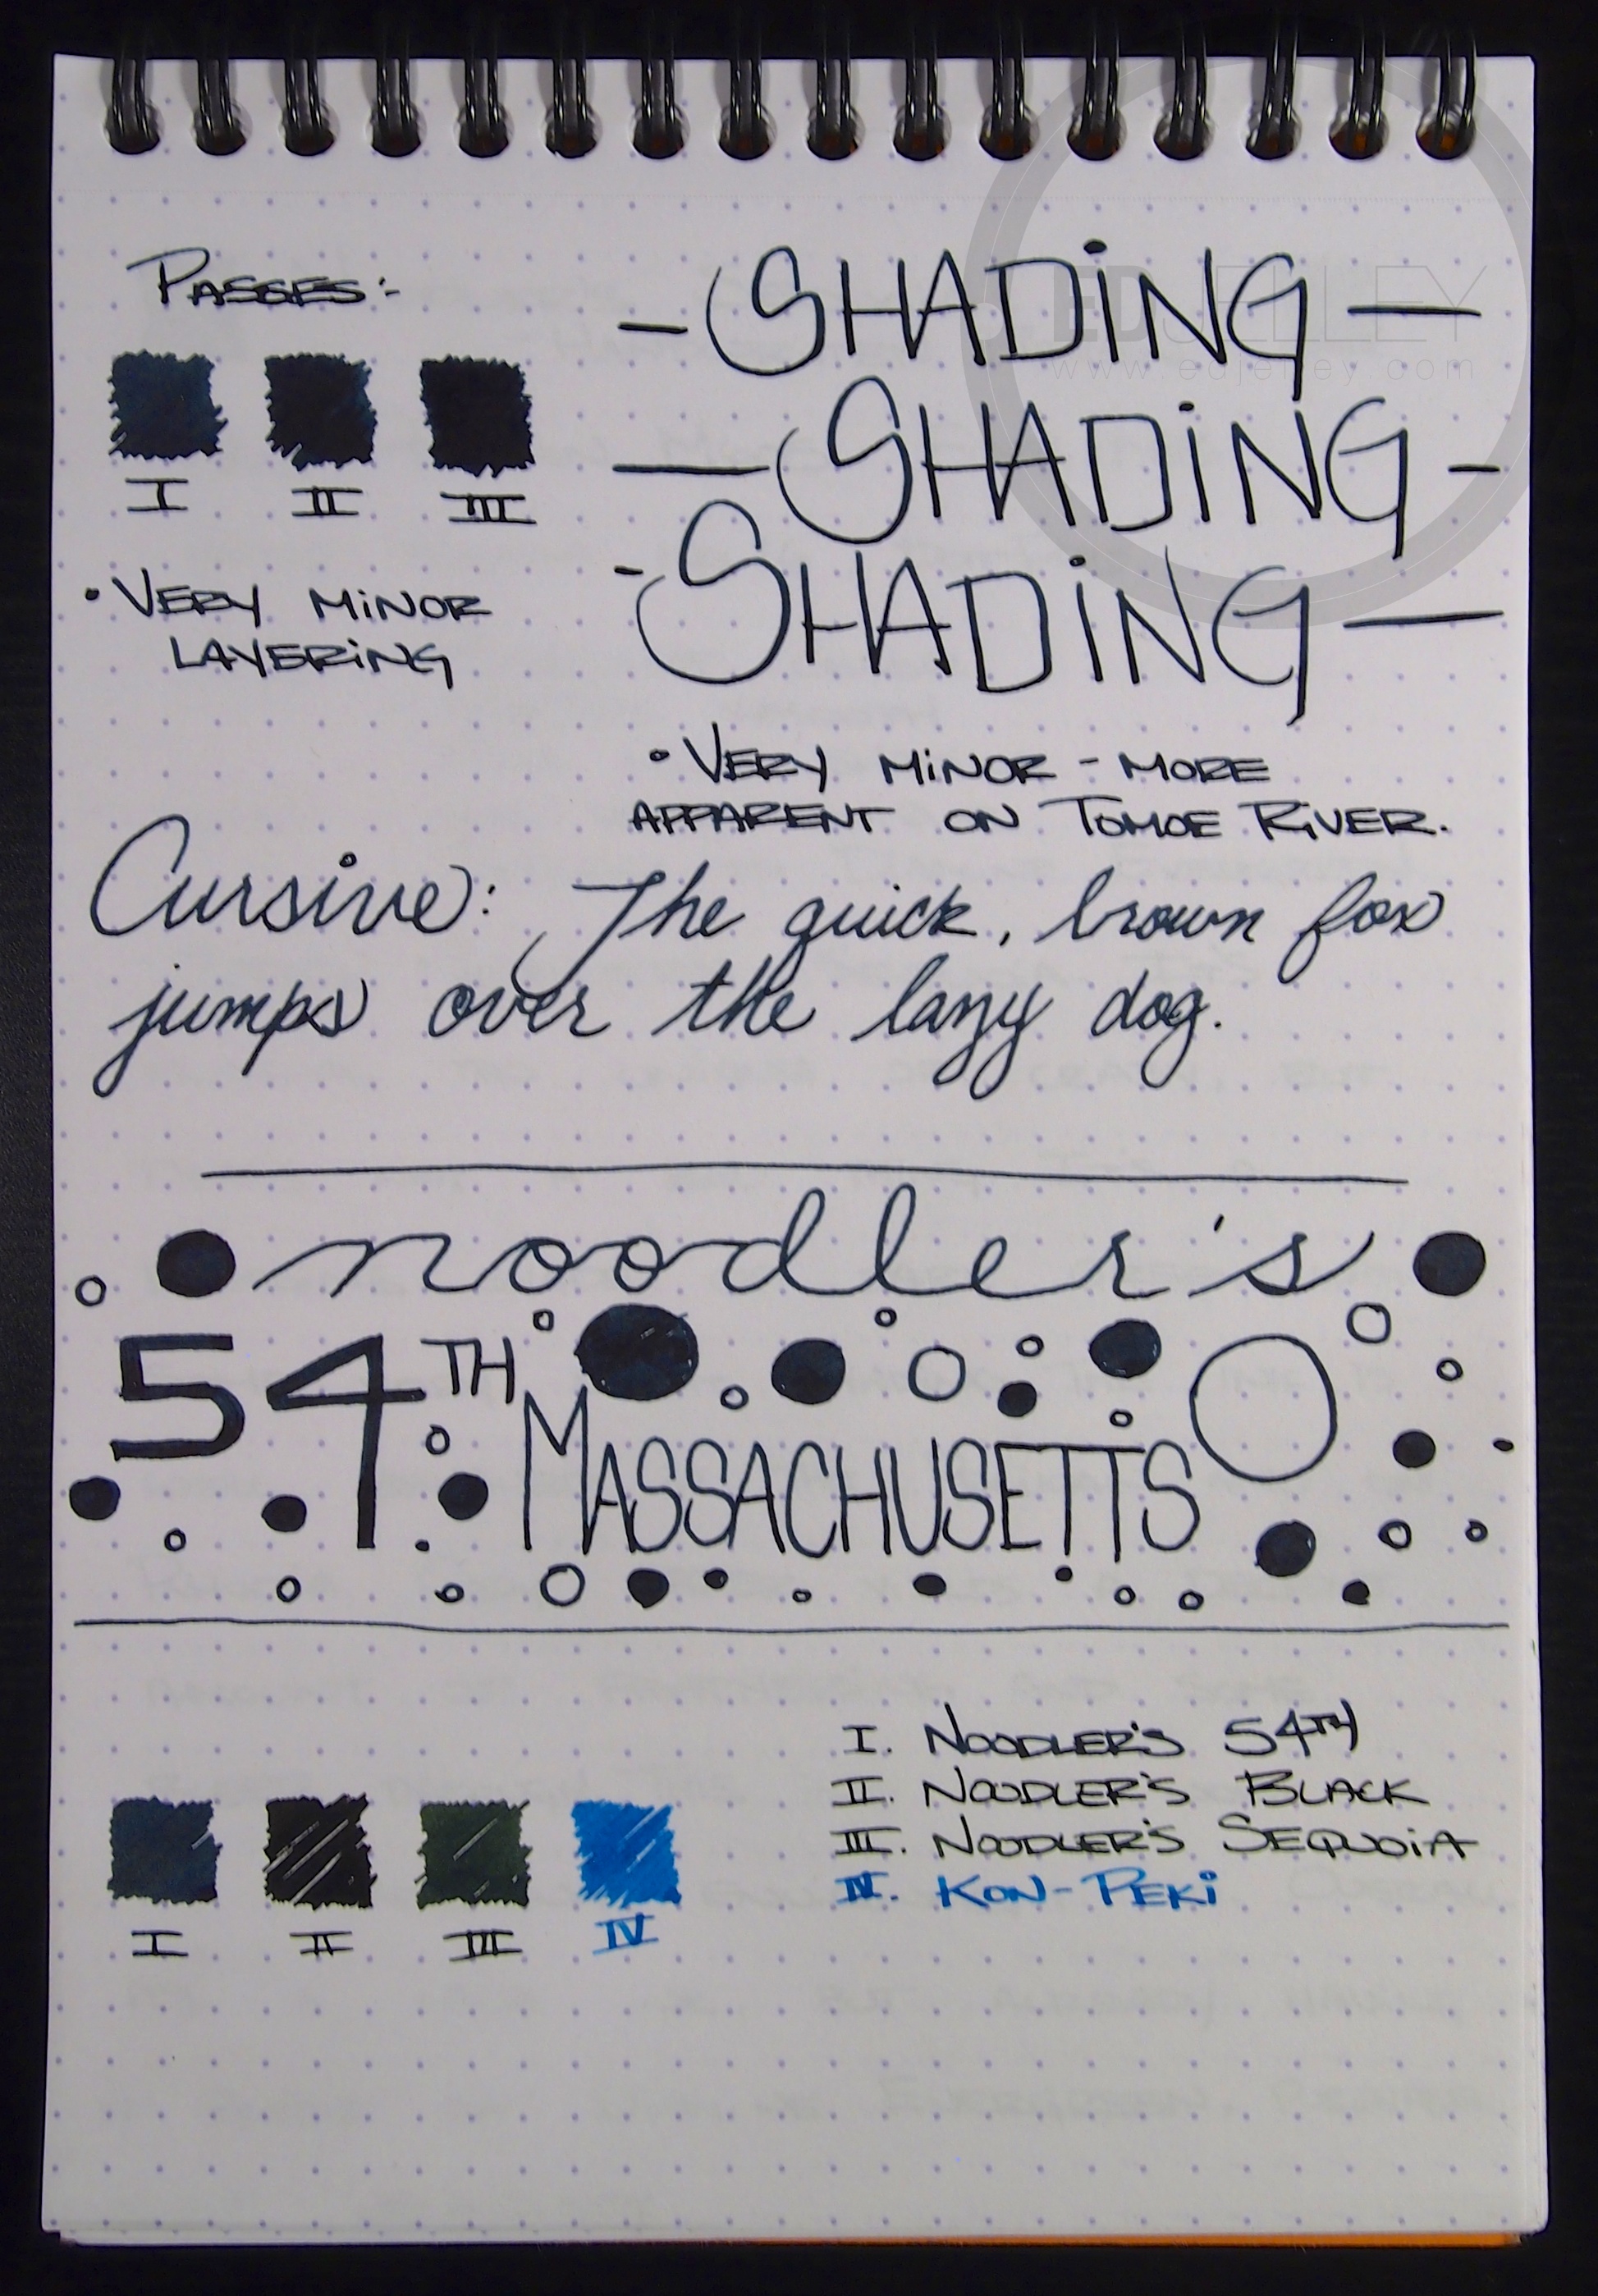 PASSES:-
I II III
• VERY MINOR
LAYERING
- SHADING -
- SHADING -
- SHADING -
• VERY MINOR - MORE
APPARENT ON TOMOE RIVER.
EDJELLEY
www.edjelley.com
Cursive: The quick, brown fox
jumps over the lazy dog.
noodler's
54TH
MASSACHUSETTS
I II III IV
I. NOODLER'S 54TH
II. NOODLER'S BLACK
III. NOODLER'S SEQUOIA
IV. KON-PEKI